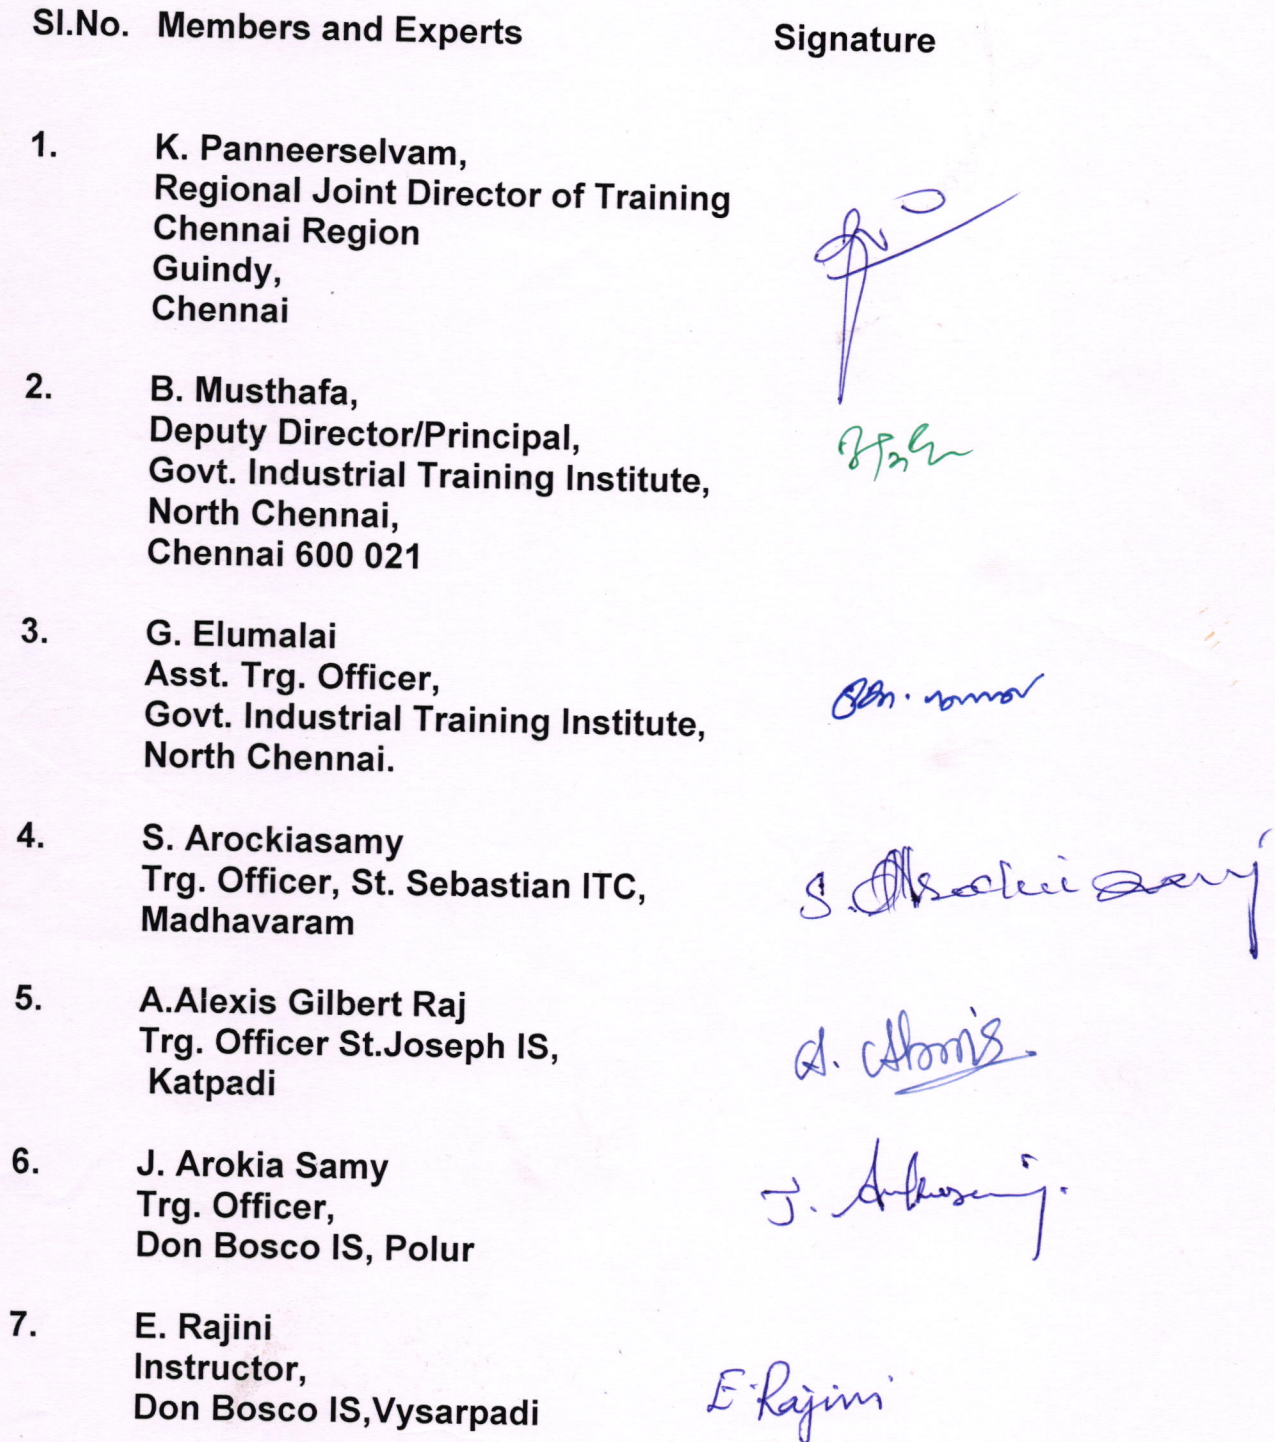 Sl.No. Members and Experts Signature
1. K. Panneerselvam,
Regional Joint Director of Training
Chennai Region
Guindy,
Chennai
2. B. Musthafa,
Deputy Director/Principal,
Govt. Industrial Training Institute,
North Chennai,
Chennai 600 021
3. G. Elumalai
Asst. Trg. Officer,
Govt. Industrial Training Institute,
North Chennai.
4. S. Arockiasamy
Trg. Officer, St. Sebastian ITC,
Madhavaram
S. Arockiasamy
5. A.Alexis Gilbert Raj
Trg. Officer St.Joseph IS,
Katpadi
A.
6. J. Arokia Samy
Trg. Officer,
Don Bosco IS, Polur
J.
7. E. Rajini
Instructor,
Don Bosco IS,Vysarpadi
E.Rajini